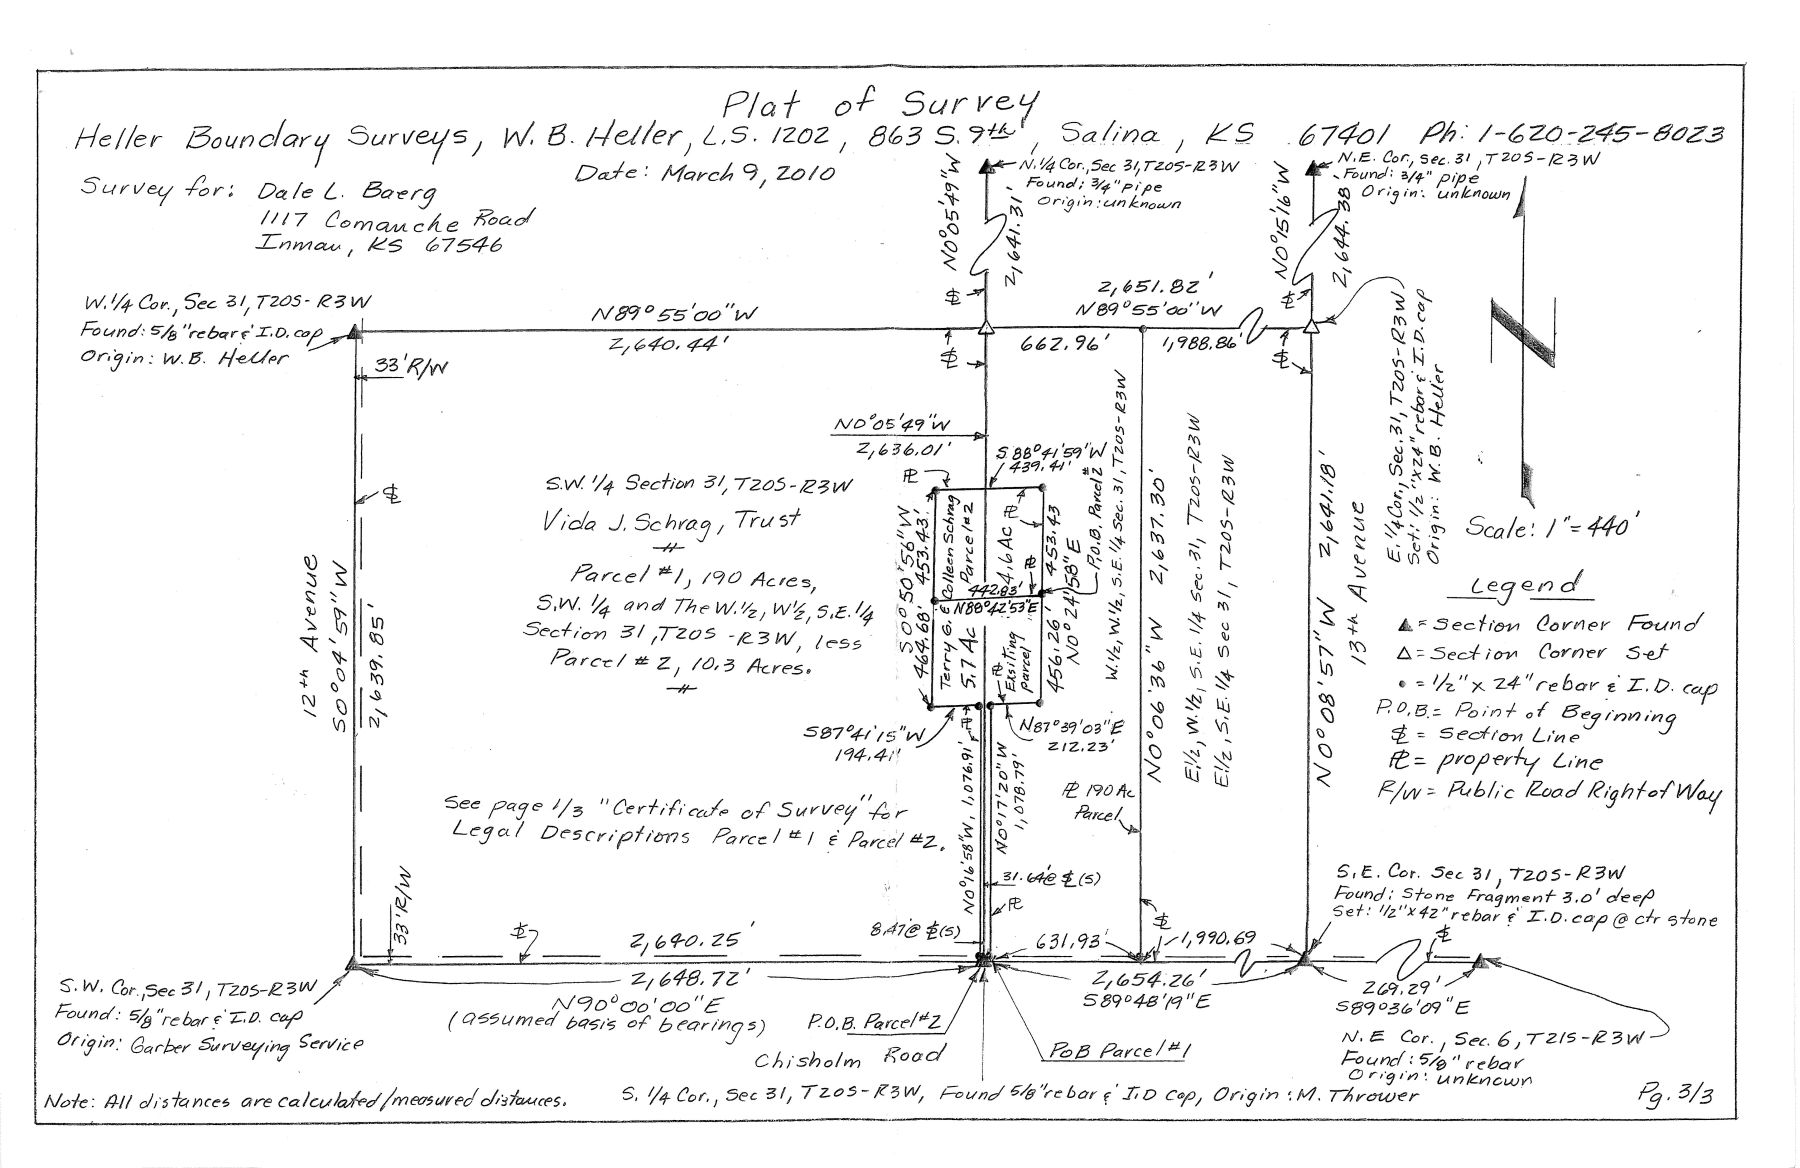 Plat of Survey
Heller Boundary Surveys, W. B. Heller, L.S. 1202, 863 S. 9th, Salina, KS 67401 Ph: 1-620-245-8023
Date: March 9, 2010
Survey for: Dale L. Baerg
1117 Comanche Road
Inman, KS 67546
N0°05'49"W
2,641.31'
N.1/4 Cor., Sec 31, T20S-R3W
Found: 3/4" pipe
Origin: unknown
N0°15'16"W
2,644.38'
N.E. Cor., Sec. 31, T20S-R3W
Found: 3/4" pipe
Origin: unknown
W.1/4 Cor., Sec 31, T20S-R3W
Found: 5/8" rebar & I.D. cap
Origin: W.B. Heller
33' R/W
N89°55'00"W
2,640.44'
2,651.82'
N89°55'00"W
662.96'
1,988.86'
E. 1/4 Cor., Sec. 31, T20S-R3W
Set: 1/2"x24" rebar & I.D. cap
Origin: W. B. Heller
N0°05'49"W
2,636.01'
S88°41'59"W
439.41'
P.O.B. Parcel #2
W.1/2, W.1/2, S.E.1/4 Sec. 31, T20S-R3W
S.W. 1/4 Section 31, T20S-R3W
Vida J. Schrag, Trust
Parcel #1, 190 Acres,
S.W. 1/4 and The W.1/2, W1/2, S.E.1/4
Section 31, T20S-R3W, less
Parcel #2, 10.3 Acres.
S0°50'56"W
464.68' 453.43'
Terry G. & Colleen Schrag
5.7 Ac Parcel #2
4.6 Ac
442.83'
N88°42'53"E
Exsiting
Parcel
453.43
456.26'
N0°24'58"E
N0°06'36"W 2,637.30'
E.1/2, W.1/2, S.E. 1/4 Sec. 31, T20S-R3W
E.1/2, S.E. 1/4 Sec 31, T20S-R3W
N0°08'57"W 2,641.18'
13th Avenue
Scale: 1"=440'
Legend
▲ = Section Corner Found
△ = Section Corner Set
• = 1/2" x 24" rebar & I.D. cap
P.O.B. = Point of Beginning
℄ = Section Line
PL = property Line
R/W = Public Road Right of Way
12th Avenue
S0°04'59"W
2,639.85'
S87°41'15"W
194.41'
N87°39'03"E
212.23'
N0°16'58"W, 1,076.91'
N0°17'20"W
1,078.79'
PL 190 Ac
Parcel
See page 1/3 "Certificate of Survey" for
Legal Descriptions Parcel #1 & Parcel #2.
31.64@ ℄(S)
PL
8.47@ ℄(S)
33' R/W
2,640.25'
2,648.72'
N90°00'00"E
(assumed basis of bearings)
631.93'
1,990.69
2,654.26'
S89°48'19"E
S.E. Cor. Sec 31, T20S-R3W
Found: Stone Fragment 3.0' deep
Set: 1/2"x42" rebar & I.D. cap @ ctr stone
269.29'
S89°36'09"E
S.W. Cor., Sec 31, T20S-R3W
Found: 5/8" rebar & I.D. cap
Origin: Garber Surveying Service
P.O.B. Parcel #2
Chisholm Road
PoB Parcel #1
N.E Cor., Sec. 6, T21S-R3W
Found: 5/8" rebar
Origin: unknown
Note: All distances are calculated/measured distances.
S. 1/4 Cor., Sec 31, T20S-R3W, Found 5/8" rebar & I.D cap, Origin: M. Thrower
Pg. 3/3